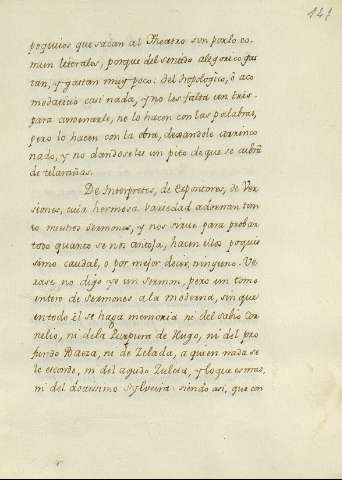 141
poquios que sacan al Theatro son por lo co-
mun literales, porque del sentido alegorico gus
tan, y gastan muy poco: del tropologico, ò aco
modaticio casi nada, y no les falta un tris
para condenarle, no lo hacen con las palabras,
pero lo hacen con la obra, dexandole arrinco
nado, y no dandoseles un pito de que se cubra
de telarañas.
De Interpretes, de Expositores, de Ver
siones, cuia hermosa variedad adornan tan
to muchos sermones, y nos sirve para probar
todo quanto se nos antoja, hacen ellos poquis
simo caudal, o por mejor decir, ninguno. Ve
rase, no digo yo un sermon, pero un tomo
entero de sermones a la moderna, sin que
en todo èl se haga memoria ni del sabio Cor
nelio, ni de la Purpura de Hugo, ni del pro
fundo Baeza, ni de Zelada, a quien nada se
le esconde, ni del agudo Zuleta, y lo que es mas,
ni del doctissimo Sylveira: siendo asi, que con